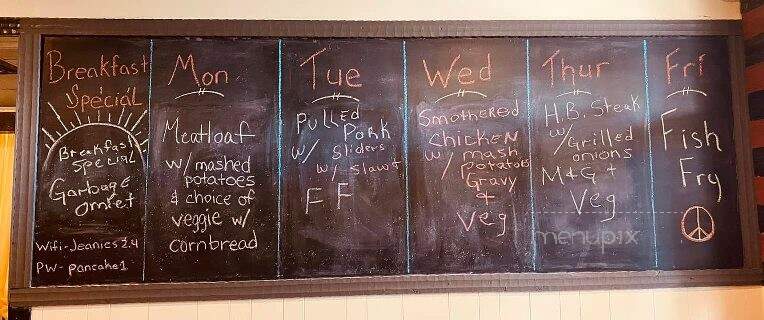 Breakfast
Special
Breakfast
Special
Garbage
omlet
Wifi-Jeanies 2.4
PW- pancake1
Mon
Meatloaf
w/ mashed
potatoes
& choice of
veggie w/
cornbread
Tue
Pulled
Pork
w/ Sliders
w/ slaw +
F F
Wed
Smothered
chicken
w/ mash
potatoes
Gravy
+
Veg
Thur
H.B. Steak
w/ Grilled
onions
M+G +
Veg
menupix
Fri
Fish
Fry